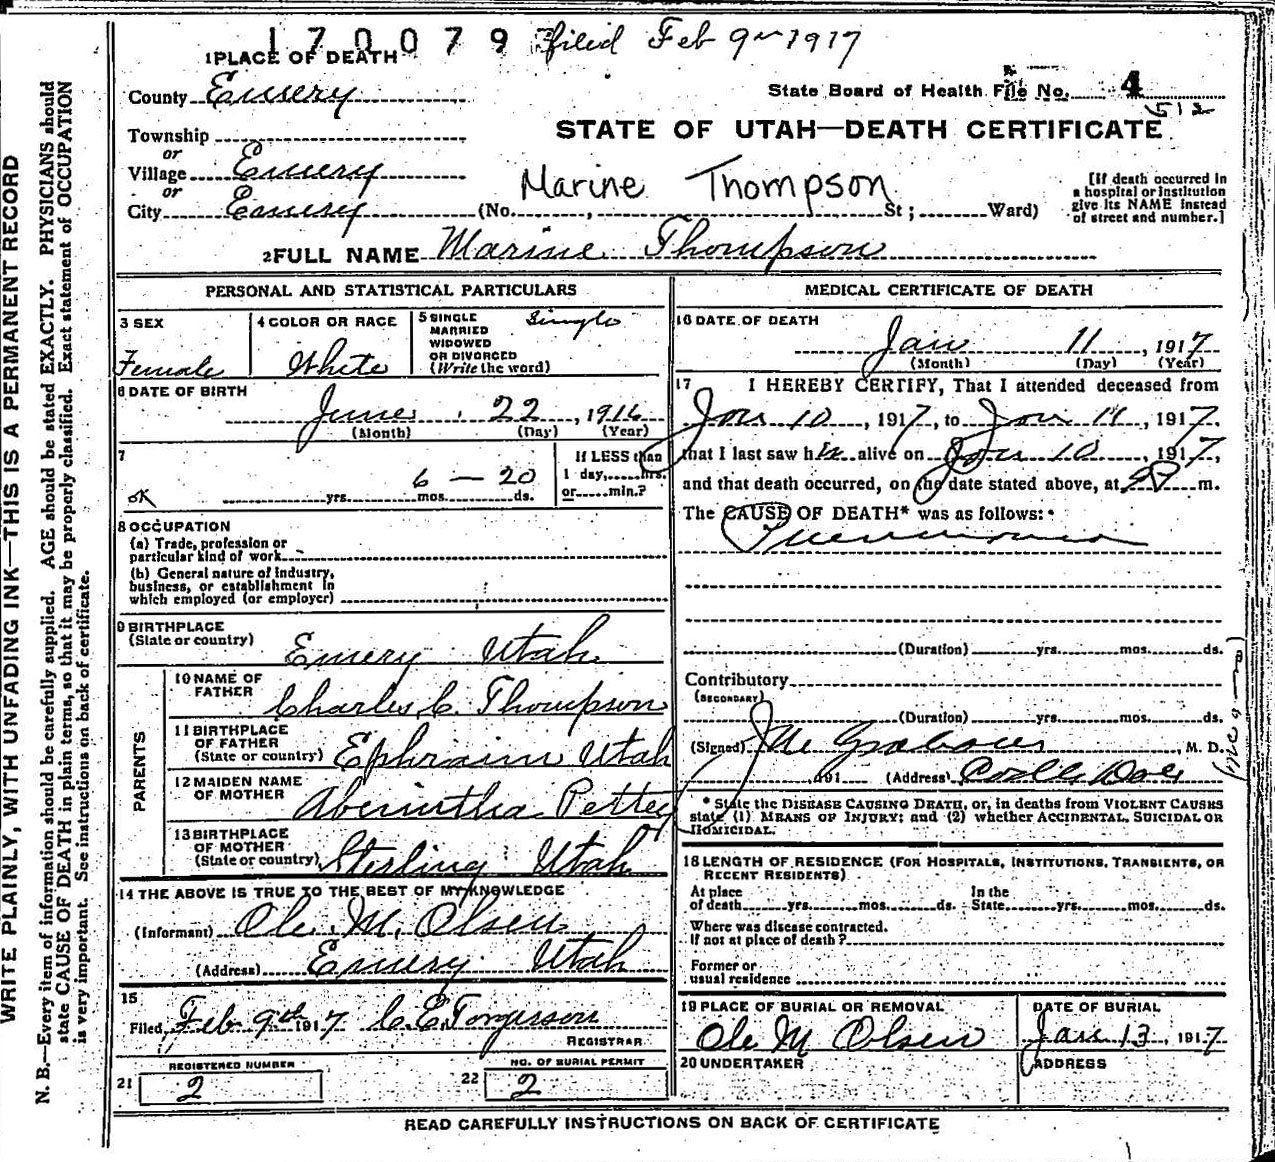 170079 filed Feb 9th 1917
1 PLACE OF DEATH
County Emery
State Board of Health File No. 4
512
Township
STATE OF UTAH—DEATH CERTIFICATE
or
Village Emery
Marine Thompson
or
City Emery (No. , St; Ward)
[If death occurred in a hospital or institution give its NAME instead of street and number.]
2 FULL NAME Marine Thompson
PERSONAL AND STATISTICAL PARTICULARS
3 SEX
Female
4 COLOR OR RACE
White
5 SINGLE MARRIED WIDOWED OR DIVORCED (Write the word)
Single
6 DATE OF BIRTH
June 22, 1916
(Month) (Day) (Year)
7
OK
yrs. 6 mos. — 20 ds.
If LESS than 1 day, hrs. or min.?
8 OCCUPATION
(a) Trade, profession or
particular kind of work
(b) General nature of industry,
business, or establishment in
which employed (or employer)
9 BIRTHPLACE
(State or country)
Emery Utah
PARENTS
10 NAME OF FATHER
Charles C. Thompson
11 BIRTHPLACE OF FATHER
(State or country) Ephraim Utah
12 MAIDEN NAME OF MOTHER
Pettey
13 BIRTHPLACE OF MOTHER
(State or country) Sterling Utah
14 THE ABOVE IS TRUE TO THE BEST OF MY KNOWLEDGE
(Informant) Ole M. Olsen
(Address) Emery Utah
15
Filed Feb 9th 1917 C. E. Torgerson
REGISTRAR
21 REGISTERED NUMBER
2
22 NO. OF BURIAL PERMIT
2
MEDICAL CERTIFICATE OF DEATH
16 DATE OF DEATH
Jan 11, 1917
(Month) (Day) (Year)
17 I HEREBY CERTIFY, That I attended deceased from
Jan 10, 1917, to Jan 11, 1917.
that I last saw her alive on Jan 10, 1917,
and that death occurred, on the date stated above, at m.
The CAUSE OF DEATH* was as follows:
Pneumonia
(Duration) yrs. mos. ds.
Contributory
(SECONDARY)
(Duration) yrs. mos. ds.
(Signed) , M. D.
191 (Address)
* State the DISEASE CAUSING DEATH, or, in deaths from VIOLENT CAUSES
state (1) MEANS OF INJURY; and (2) whether ACCIDENTAL, SUICIDAL OR
HOMICIDAL.
18 LENGTH OF RESIDENCE (FOR HOSPITALS, INSTITUTIONS, TRANSIENTS, OR
RECENT RESIDENTS)
At place of death yrs. mos. ds. In the State yrs. mos. ds.
Where was disease contracted.
If not at place of death?
Former or
usual residence
19 PLACE OF BURIAL OR REMOVAL
Ole M Olsen
DATE OF BURIAL
Jan 13, 1917
20 UNDERTAKER
ADDRESS
READ CAREFULLY INSTRUCTIONS ON BACK OF CERTIFICATE
WRITE PLAINLY, WITH UNFADING INK—THIS IS A PERMANENT RECORD
N. B.—Every item of information should be carefully supplied. AGE should be stated EXACTLY. PHYSICIANS should
state CAUSE OF DEATH in plain terms, so that it may be properly classified. Exact statement of OCCUPATION
is very important. See instructions on back of certificate.